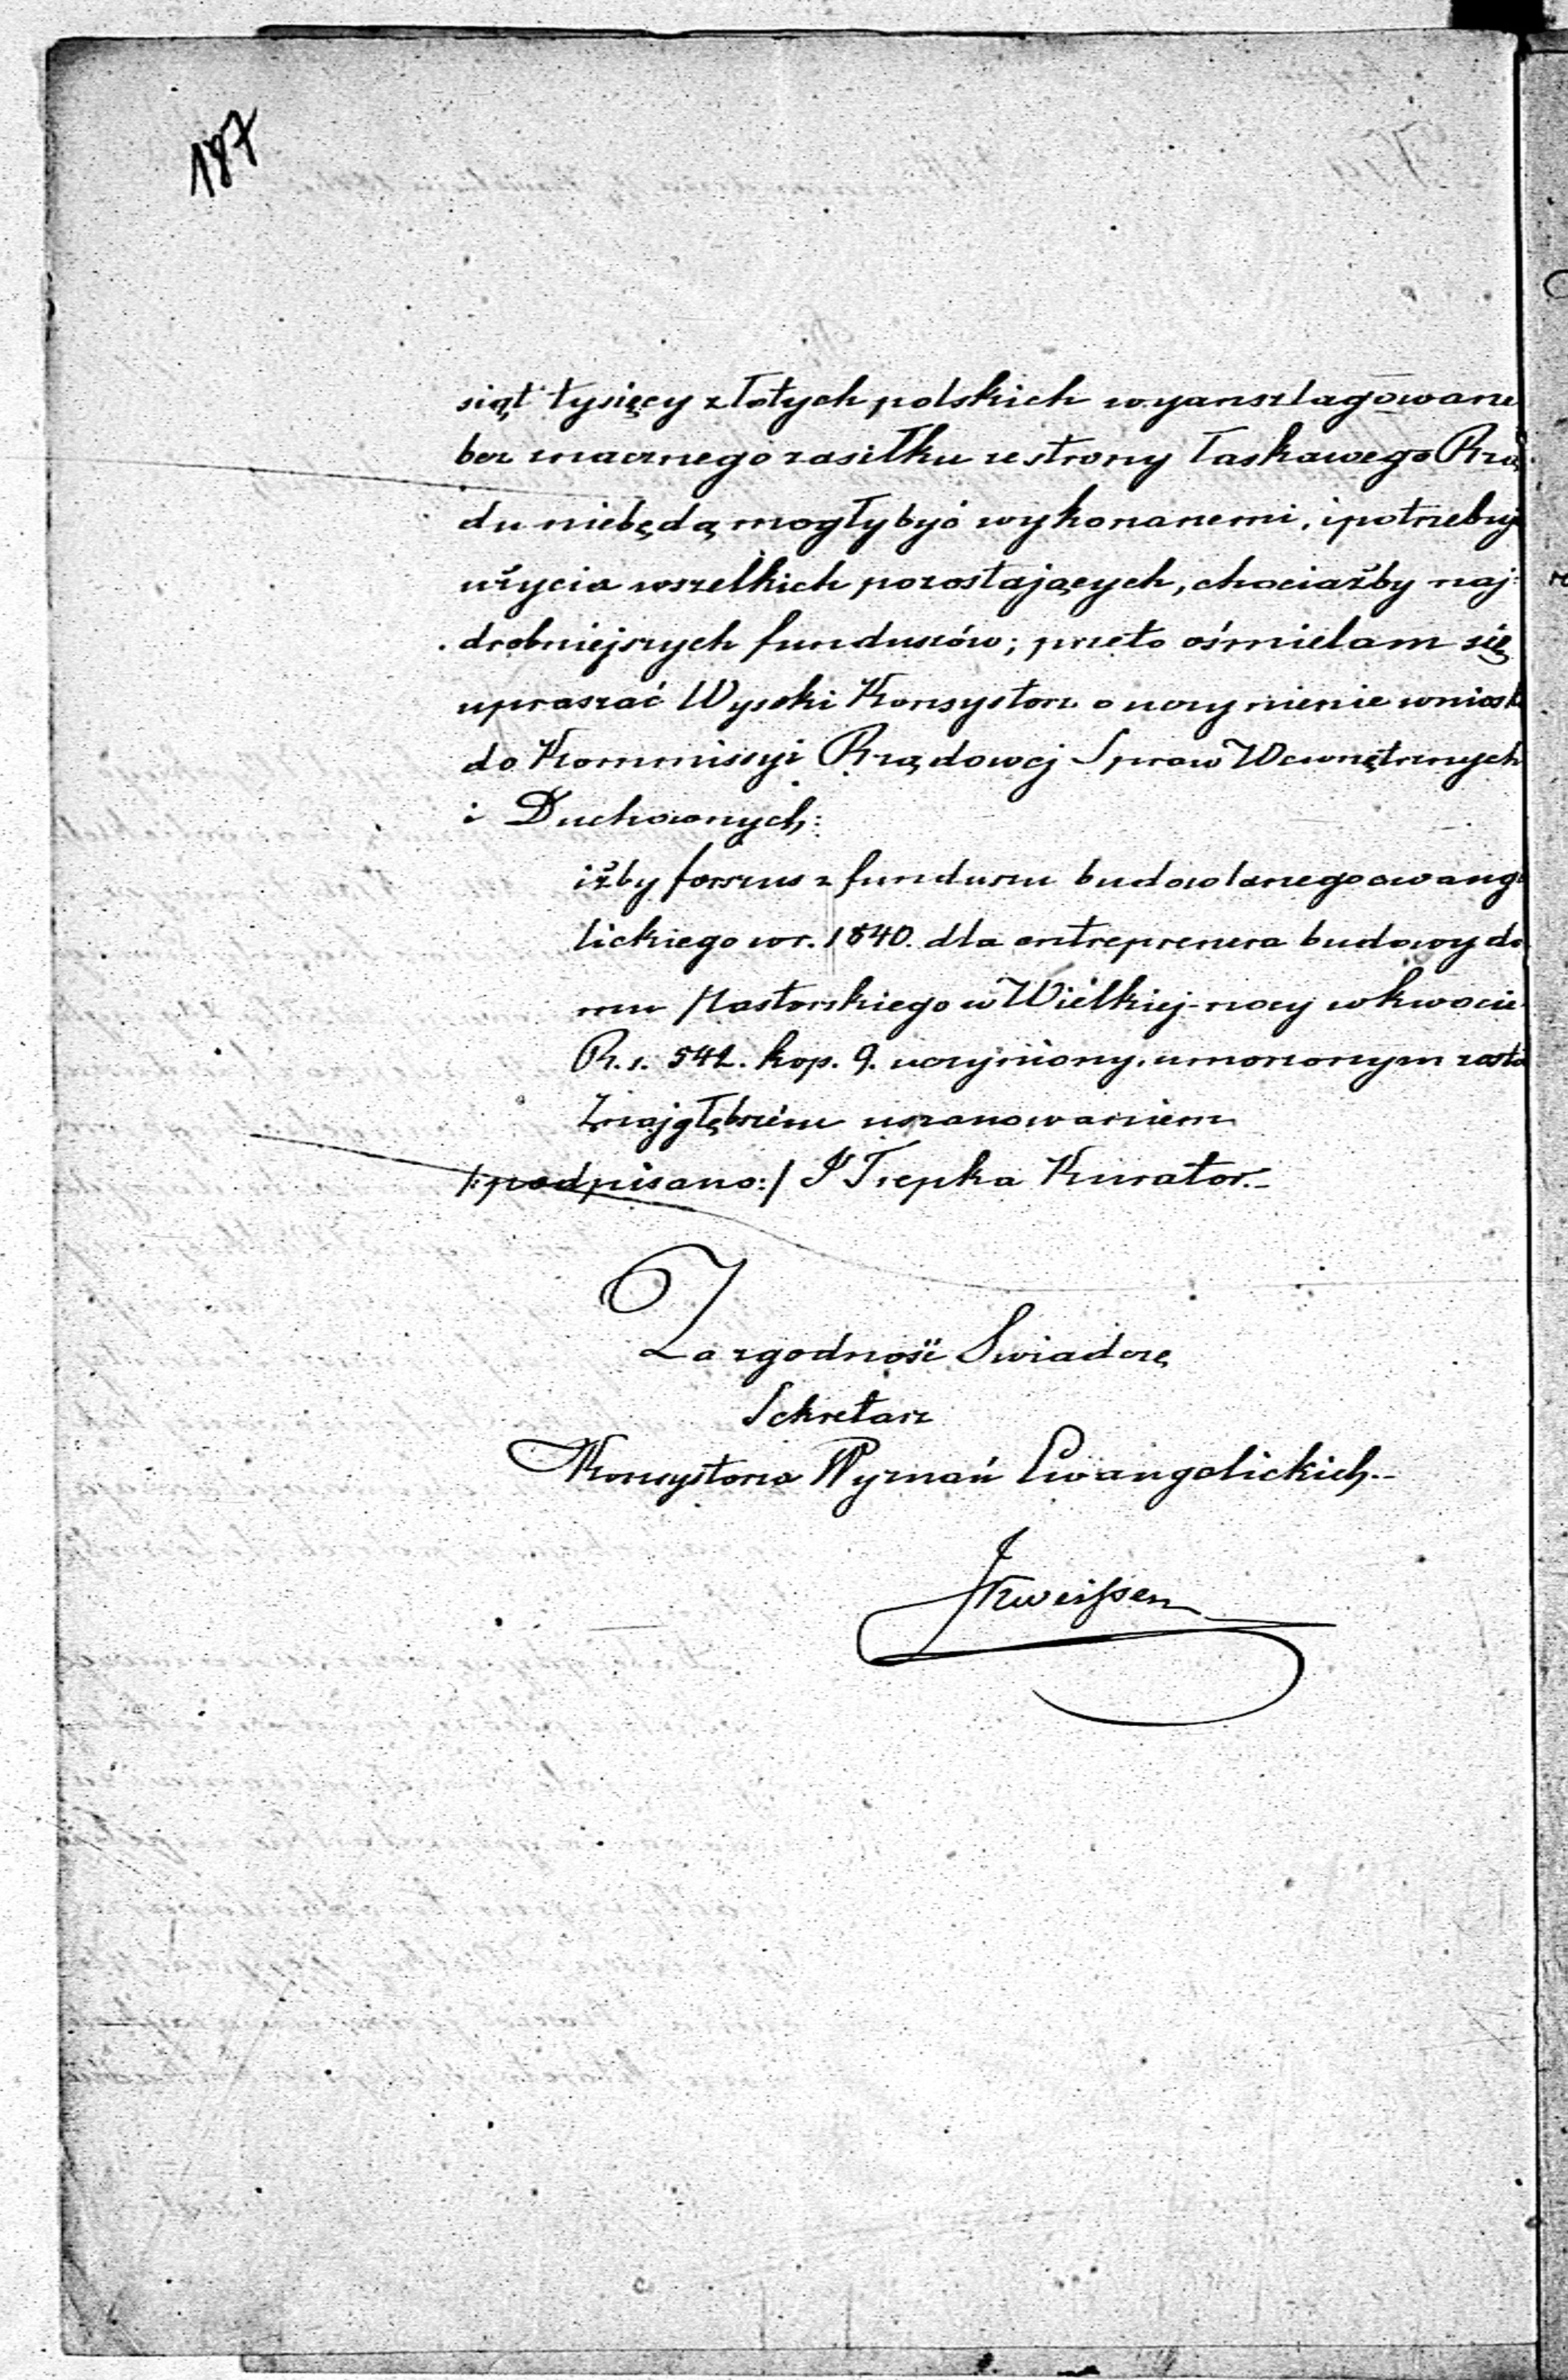 187
siąt tysięcy złotych polskich wyanszlagowane
bez znacznego zasiłku ze strony łaskawego Rzą
du niebędą mogły być wykonanemi, i potrzebuje
użycia wszelkich pozostających, chociażby naj:
drobniejszych funduszów; przeto ośmielam się
upraszać Wysoki Konsystorz o uczynienie wniosk
do Kommissyi Rządowej Spraw Wewnętrznych
i Duchownych:
iżby forszus z funduszu budowlanego ewange
lickiego w r. 1840. dla entreprenera budowy do
mu Pastorskiego w Wielkiej-nocy w kwocie
R. s. 542. kop. 9. uczyniony, umorzonym zosta
Z najgłębszém uszanowaniem
/:podpisano:/ J Trepka Kurator.-
Za zgodność Swiadczę
Sekretarz
Konsystorza Wyznań Ewangelickich.-